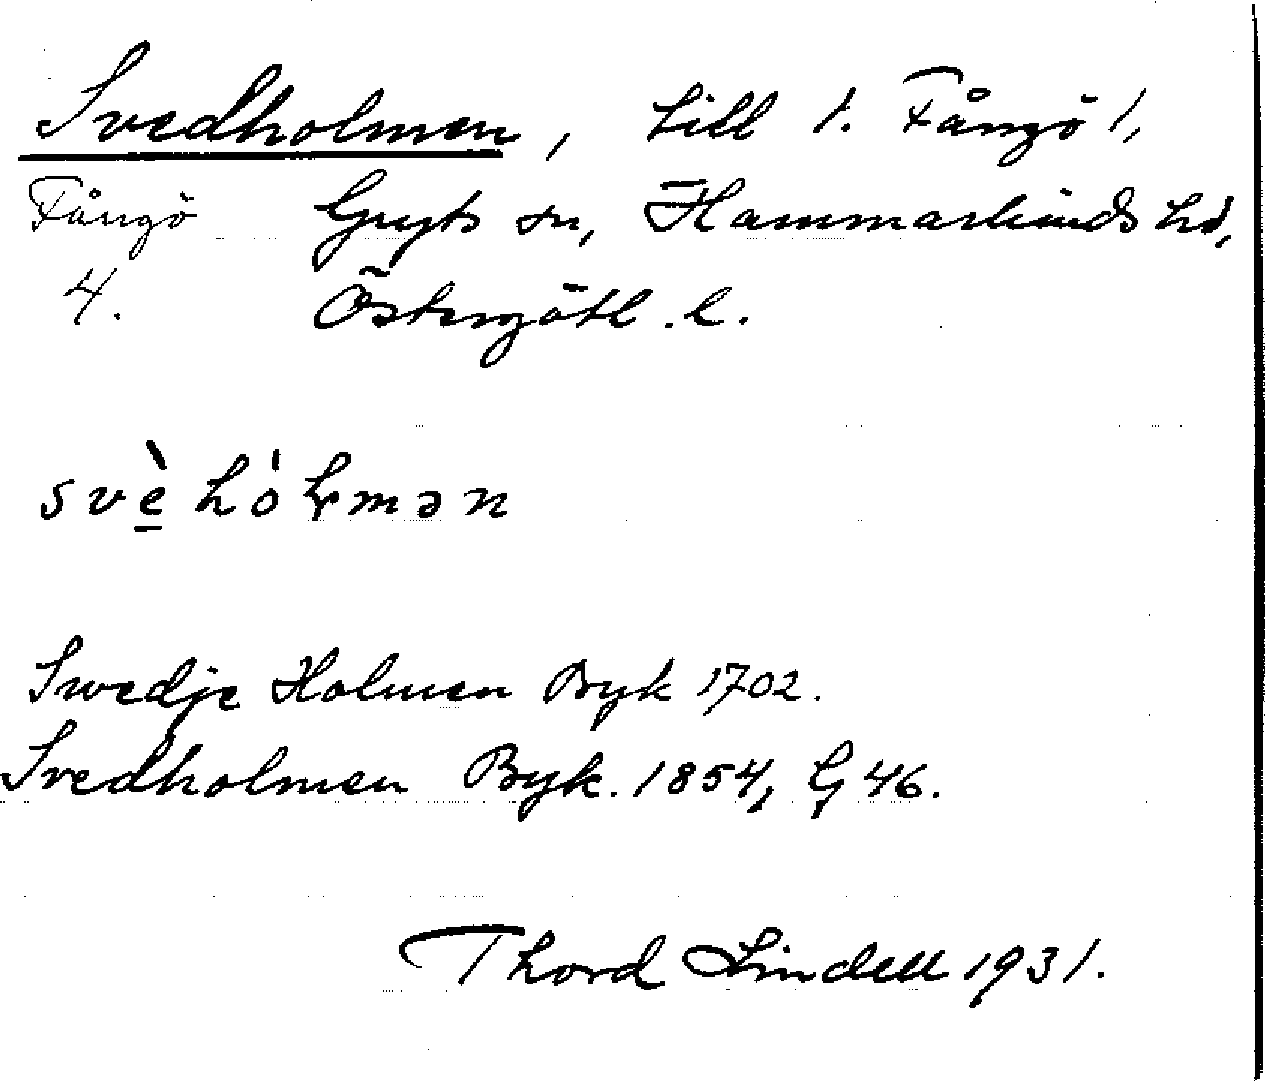 Svedholmen, till 1. Fångö 1,
Fångö Gryts sn, Hammarkinds hd,
4. Östergötl. l.
svèhólmən
Swedje Holmen Byk 1702.
Svedholmen Byk. 1854, G 46.
Thord Lindell 1931.